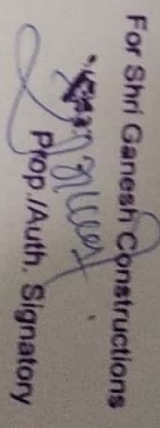 For Shri Ganesh Constructions
Prop./Auth. Signatory